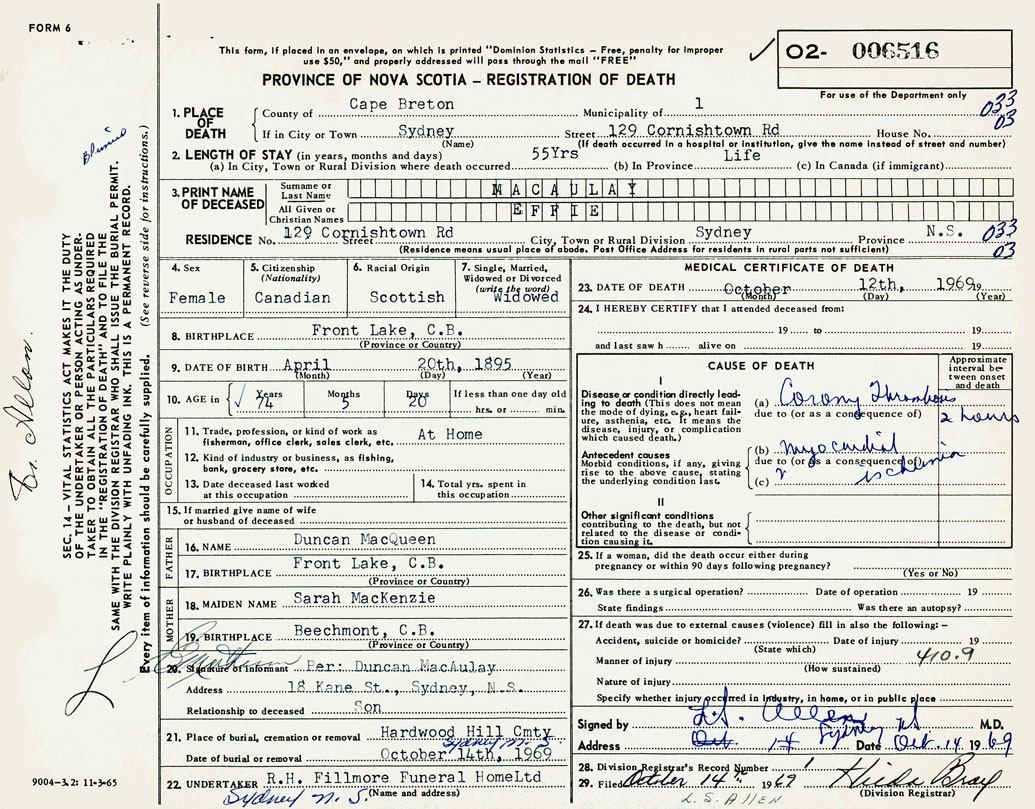 FORM 6
This form, if placed in an envelope, on which is printed "Dominion Statistics — Free, penalty for improper
use $50," and properly addressed will pass through the mail "FREE"
PROVINCE OF NOVA SCOTIA – REGISTRATION OF DEATH
✓ O2- 006516
For use of the Department only
033
03
1. PLACE OF DEATH
County of Cape Breton Municipality of 1
If in City or Town Sydney Street 129 Cornishtown Rd House No.
(Name) (If death occurred in a hospital or institution, give the name instead of street and number)
2. LENGTH OF STAY (in years, months and days) 55Yrs Life
(a) In City, Town or Rural Division where death occurred (b) In Province (c) In Canada (if immigrant)
3. PRINT NAME OF DECEASED
Surname or Last Name MACAULAY
All Given or Christian Names EFFIE
RESIDENCE No. 129 Cornishtown Rd Street City, Town or Rural Division Sydney Province N.S.
(Residence means usual place of abode. Post Office Address for residents in rural parts not sufficient)
033
03
4. Sex
Female
5. Citizenship
(Nationality)
Canadian
6. Racial Origin
Scottish
7. Single, Married,
Widowed or Divorced
(write the word)
Widowed
8. BIRTHPLACE Front Lake, C.B.
(Province or Country)
9. DATE OF BIRTH April 20th, 1895
(Month) (Day) (Year)
10. AGE in ✓ Years Months Days If less than one day old
74 5 20 hrs. or min.
OCCUPATION
11. Trade, profession, or kind of work as
fisherman, office clerk, sales clerk, etc. At Home
12. Kind of industry or business, as fishing,
bank, grocery store, etc.
13. Date deceased last worked
at this occupation
14. Total yrs. spent in
this occupation
15. If married give name of wife
or husband of deceased
FATHER
16. NAME Duncan MacQueen
17. BIRTHPLACE Front Lake, C.B.
(Province or Country)
MOTHER
18. MAIDEN NAME Sarah MacKenzie
19. BIRTHPLACE Beechmont, C.B.
(Province or Country)
20. Signature of informant Per: Duncan MacAulay
Address 18 Kane St., Sydney, N.S.
Relationship to deceased Son
21. Place of burial, cremation or removal Hardwood Hill Cmty
Sydney N.S.
Date of burial or removal October 14th, 1969
22. UNDERTAKER R.H. Fillmore Funeral HomeLtd
(Name and address)
Sydney N.S.
MEDICAL CERTIFICATE OF DEATH
23. DATE OF DEATH October 12th, 1969 19
(Month) (Day) (Year)
24. I HEREBY CERTIFY that I attended deceased from:
19 to 19
and last saw h alive on 19
CAUSE OF DEATH
Approximate
interval be-
tween onset
and death
I
Disease or condition directly lead-
ing to death (This does not mean
the mode of dying, e.g., heart fail-
ure, asthenia, etc. It means the
disease, injury, or complication
which caused death.)
(a) Corony Thrombosis
due to (or as a consequence of)
2 hours
Antecedent causes
Morbid conditions, if any, giving
rise to the above cause, stating
the underlying condition last.
(b) myocardial
due to (or as a consequence of)
(c) ischemia
II
Other significant conditions
contributing to the death, but not
related to the disease or condi-
tion causing it.
25. If a woman, did the death occur either during
pregnancy or within 90 days following pregnancy?
(Yes or No)
26. Was there a surgical operation? Date of operation 19
State findings Was there an autopsy?
27. If death was due to external causes (violence) fill in also the following: –
Accident, suicide or homicide? Date of injury 19
(State which)
410.9
Manner of injury
(How sustained)
Nature of injury
Specify whether injury occurred in industry, in home, or in public place
Signed by L.S. Allen M.D.
Sydney NS
Address Oct. 14 Date Oct. 14 1969
28. Division Registrar's Record Number
29. Filed October 14th 1969 Hilda Bray
(Division Registrar)
L. S. ALLEN
9004-3.2: 11-3-65
Dr. Allan.
SEC. 14 – VITAL STATISTICS ACT MAKES IT THE DUTY
OF THE UNDERTAKER OR PERSON ACTING AS UNDER-
TAKER TO OBTAIN ALL THE PARTICULARS REQUIRED
IN THE "REGISTRATION OF DEATH" AND TO FILE THE
SAME WITH THE DIVISION REGISTRAR WHO SHALL ISSUE THE BURIAL PERMIT.
WRITE PLAINLY WITH UNFADING INK. THIS IS A PERMANENT RECORD.
Every item of information should be carefully supplied. (See reverse side for instructions.)